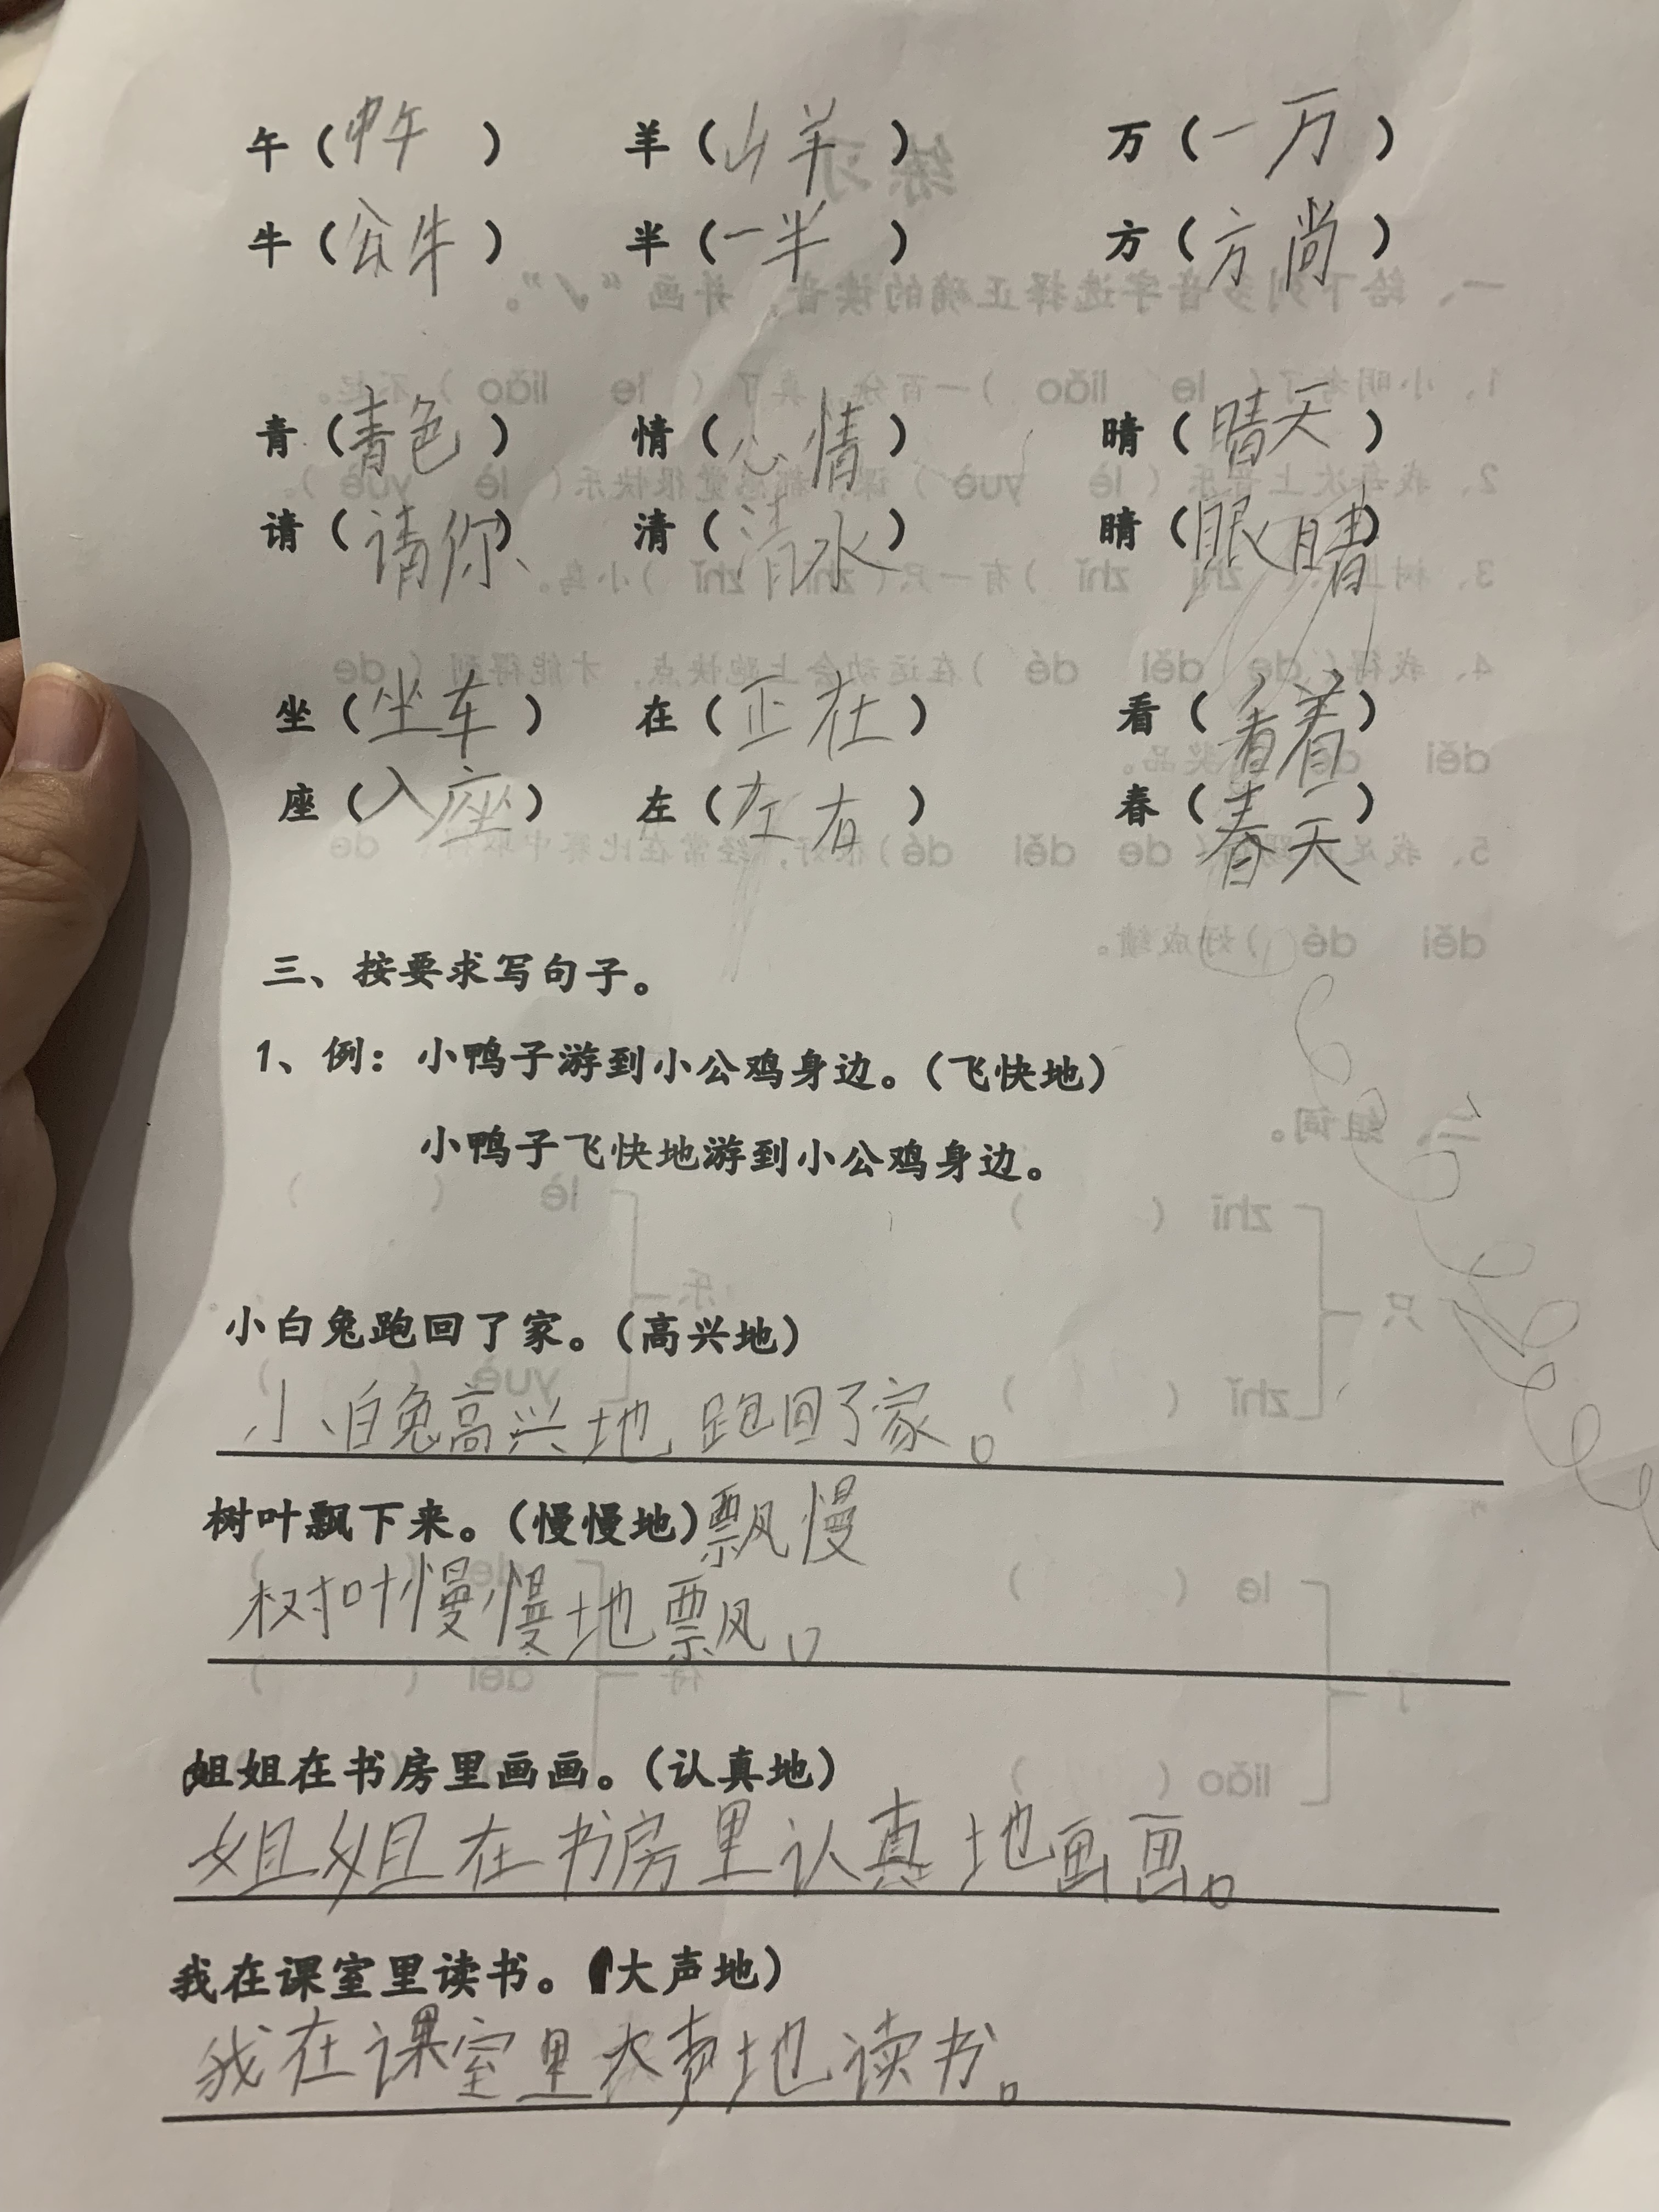 午（中午） 羊（山羊） 万（一万）
牛（公牛） 半（一半） 方（方尚）
青（青色） 情（心情） 晴（晴天）
请（请你） 清（清水） 睛（眼睛）
坐（坐车） 在（正在） 看（看着）
座（入座） 左（左右） 春（春天）
三、按要求写句子。
1、例：小鸭子游到小公鸡身边。（飞快地）
小鸭子飞快地游到小公鸡身边。
小白兔跑回了家。（高兴地）
小白兔高兴地跑回了家。
树叶飘下来。（慢慢地）飘慢
树叶慢慢地飘。
姐姐在书房里画画。（认真地）
姐姐在书房里认真地画画。
我在课室里读书。（大声地）
我在课室里大声地读书。